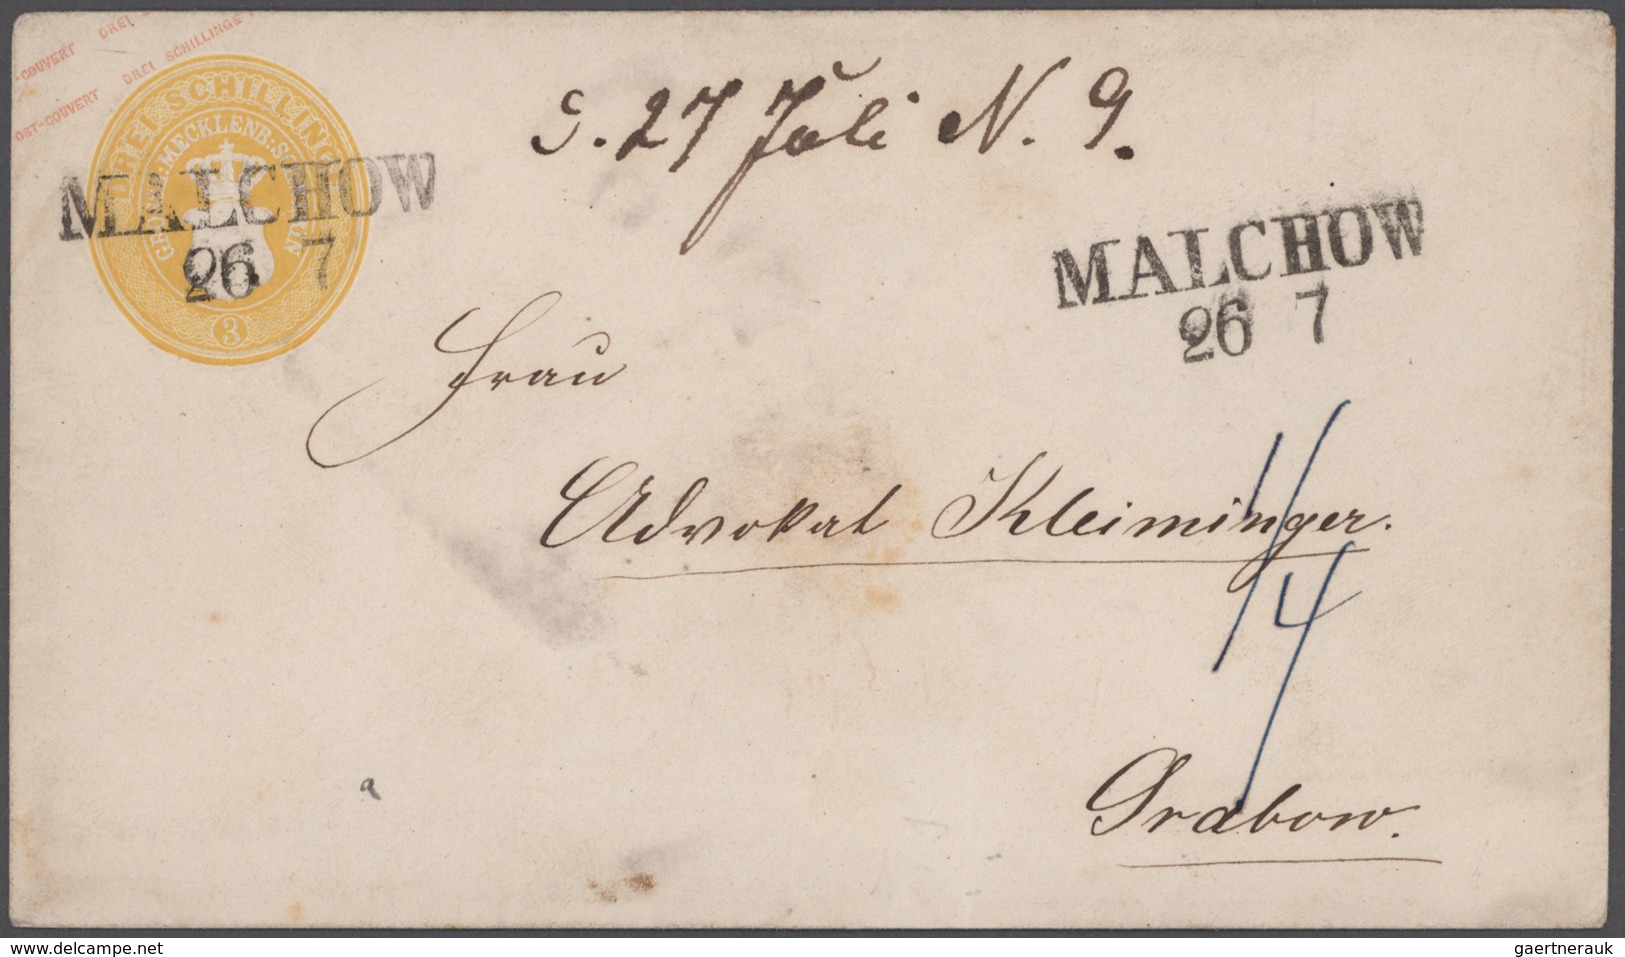 -COUVERT DREI
OST-COUVERT DREI SCHILLINGE
DREI SCHILLING
GROSSH. MECKLENB: SCHWERIN
3
MALCHOW
26 7
27 Juli N. 9.
MALCHOW
26 7
Frau
Advokat Kleiminger.
Grabow.
www.delcampe.net
gaertnerauk